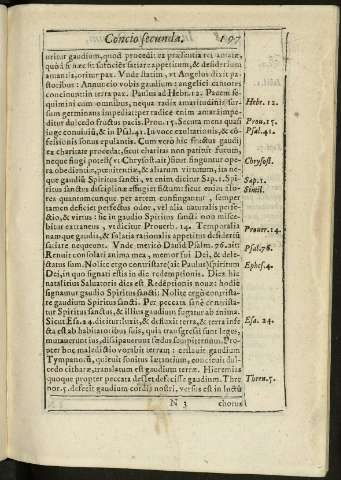 Concio secunda. 197
oritur gaudium, quod procedit ex præsentia rei amatæ,
quòd si hæc se sufficiēt satiare appetitum, & desiderium
amantis, oritur pax. Vnde statim, vt Angelus dixit pa-
storibus: Annuncio vobis gaudium: angelici cantores
concinuunt in terra pax. Paulus ad Hebr. 12. Pacem se-
quimini cum omnibus, nequa radix amaritudinis sur-
sum germinans impediat: per radicē enim amarā impe-
ditur dulcedo fructus pacis. Prou. 15. Secura mens quasi
iuge conuiuiū, & in Psal. 41. In voce exultationis, & cō-
fessionis sonus epulantis. Cum verò hic fructus gaudij
ex charitate procedat, sicut charitas non patitur fucum,
neque fingi potest (vt Chrysost. ait) sicut finguntur ope-
ra obedientiæ, pœnitentiæ, & aliarum virtutum, ita ne-
que gaudiū Spiritus sancti, vt enim dicitur Sap. 1. Spi-
ritus sanctus disciplinæ effugiet fictum: sicut enim flo-
res quantumcunque per artem confingantur, semper
tamen deficiet perfectus odor, vel alia naturalis perfe-
ctio, & virtus: sic in gaudio Spiritus sancti non misce-
bitur extraneus, vt dicitur Prouerb. 14. Temporalia
namque gaudia, & solatia rationalis appetitus desideriū
satiare nequeunt. Vnde meritò Dauid Psalm. 76. ait:
Renuit consolari anima mea, memor fui Dei, & dele-
ctatus sum. Nolite ergo contristare (ait Paulus) Spiritum
Dei, in quo signati estis in die redemptionis. Dies hic
natalitius Saluatoris dies est Redēptionis nouæ: hodie
signantur gaudio Spiritus sancti: Nolite ergò contrista-
re gaudium Spiritus sancti. Per peccata sanè contrista-
tur Spiritus sanctus, & illius gaudium fugatur ab anima.
Sicut Esa. 24. dicitur: luxit, & defluxit terra, & terra infe
cta est ab habitatoribus suis, quia transgressi sunt leges,
mutauerunt ius, dissipauerunt fœdus sempiternum. Pro-
pter hoc maledictio vorabit terram: cessauit gaudium
Tympanorū, quieuit sonitus lætantium, conticuit dul-
cedo citharæ, translatum est gaudium terræ. Hieremias
quoque propter peccata deflet defecisse gaudium. Thre
nor. 5. defecit gaudium cordis nostri, versus est in luctū
N 3 chorus
Hebr. 12.
Prou. 15.
Psal. 41.
Chrysost.
Sap. 1.
Simil.
Prouer. 14.
Psal. 76.
Ephes. 4.
Esa. 24.
Thren. 5.